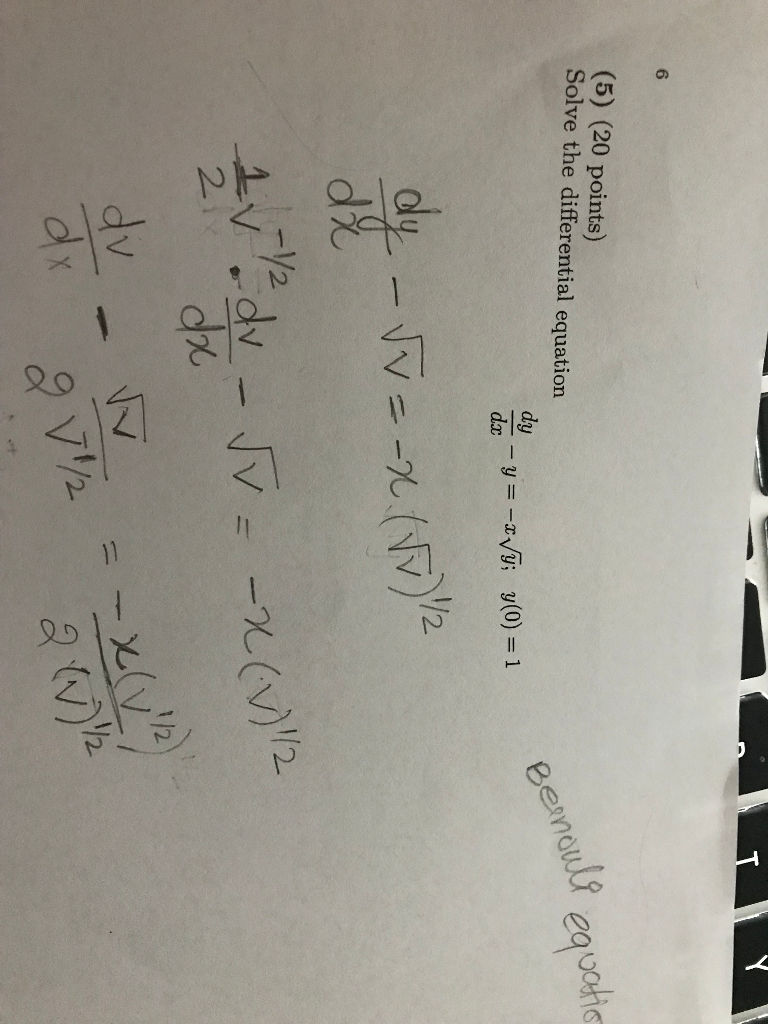 6
(5) (20 points)
Solve the differential equation
dy/dx − y = −x√y; y(0) = 1
Bernoulli equatio
dy/dx − √v = −x(√v)^1/2
1/2 v^−1/2 · dv/dx − √v = −x(v)^1/2
dv/dx − √v/2v^1/2 = −x(v^1/2)/2(v)^1/2
T
Y